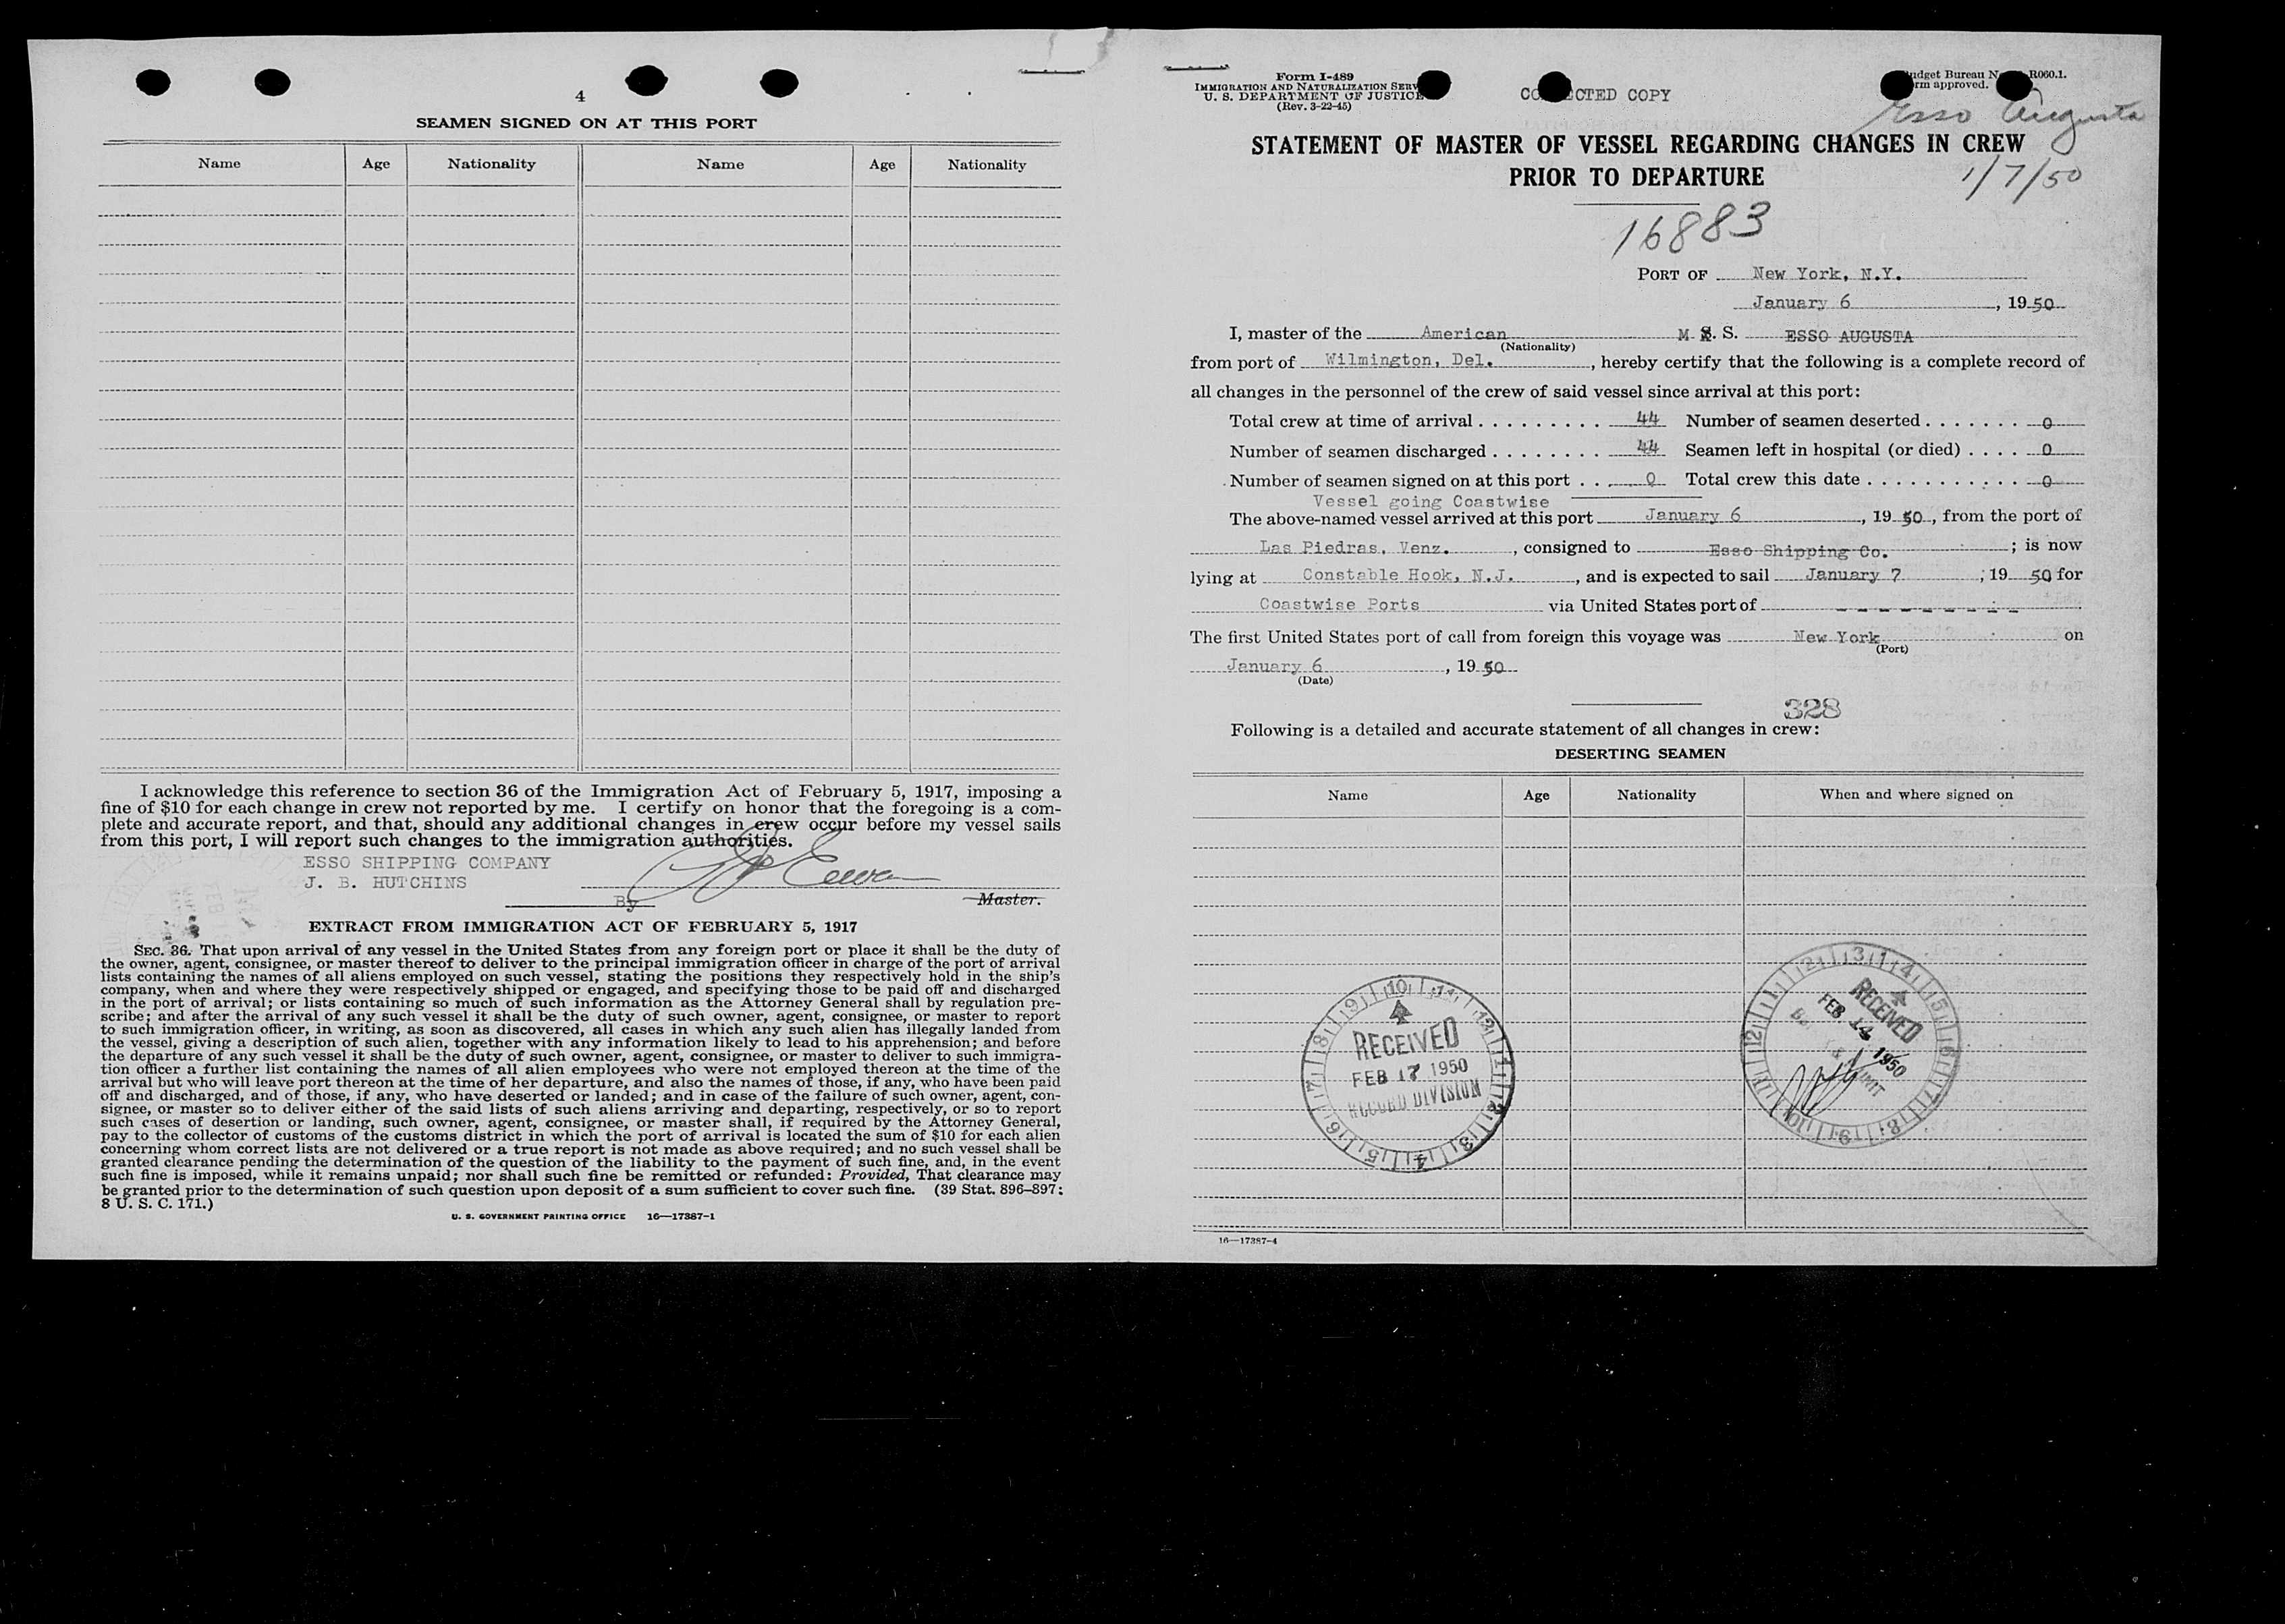 4
SEAMEN SIGNED ON AT THIS PORT
Name Age Nationality Name Age Nationality
I acknowledge this reference to section 36 of the Immigration Act of February 5, 1917, imposing a
fine of $10 for each change in crew not reported by me. I certify on honor that the foregoing is a com-
plete and accurate report, and that, should any additional changes in crew occur before my vessel sails
from this port, I will report such changes to the immigration authorities.
ESSO SHIPPING COMPANY
J. B. HUTCHINS
By Master.
EXTRACT FROM IMMIGRATION ACT OF FEBRUARY 5, 1917
SEC. 36. That upon arrival of any vessel in the United States from any foreign port or place it shall be the duty of
the owner, agent, consignee, or master thereof to deliver to the principal immigration officer in charge of the port of arrival
lists containing the names of all aliens employed on such vessel, stating the positions they respectively hold in the ship's
company, when and where they were respectively shipped or engaged, and specifying those to be paid off and discharged
in the port of arrival; or lists containing so much of such information as the Attorney General shall by regulation pre-
scribe; and after the arrival of any such vessel it shall be the duty of such owner, agent, consignee, or master to report
to such immigration officer, in writing, as soon as discovered, all cases in which any such alien has illegally landed from
the vessel, giving a description of such alien, together with any information likely to lead to his apprehension; and before
the departure of any such vessel it shall be the duty of such owner, agent, consignee, or master to deliver to such immigra-
tion officer a further list containing the names of all alien employees who were not employed thereon at the time of the
arrival but who will leave port thereon at the time of her departure, and also the names of those, if any, who have been paid
off and discharged, and of those, if any, who have deserted or landed; and in case of the failure of such owner, agent, con-
signee, or master so to deliver either of the said lists of such aliens arriving and departing, respectively, or so to report
such cases of desertion or landing, such owner, agent, consignee, or master shall, if required by the Attorney General,
pay to the collector of customs of the customs district in which the port of arrival is located the sum of $10 for each alien
concerning whom correct lists are not delivered or a true report is not made as above required; and no such vessel shall be
granted clearance pending the determination of the question of the liability to the payment of such fine, and, in the event
such fine is imposed, while it remains unpaid; nor shall such fine be remitted or refunded: Provided, That clearance may
be granted prior to the determination of such question upon deposit of a sum sufficient to cover such fine. (39 Stat. 896–897;
8 U. S. C. 171.)
U. S. GOVERNMENT PRINTING OFFICE 16—17387-1
Form I-489
IMMIGRATION AND NATURALIZATION SERV
U. S. DEPARTMENT OF JUSTICE
(Rev. 3-22-45)
CO CTED COPY
udget Bureau N R060.1.
rm approved.
Esso Augusta
STATEMENT OF MASTER OF VESSEL REGARDING CHANGES IN CREW
PRIOR TO DEPARTURE
1/7/50
16883
PORT OF New York, N.Y.
January 6, 19 50
I, master of the American M S. S. ESSO AUGUSTA
(Nationality)
from port of Wilmington, Del., hereby certify that the following is a complete record of
all changes in the personnel of the crew of said vessel since arrival at this port:
Total crew at time of arrival . . . . . . . . . 44 Number of seamen deserted . . . . . . . 0
Number of seamen discharged . . . . . . . . 44 Seamen left in hospital (or died) . . . . 0
Number of seamen signed on at this port . . . 0 Total crew this date . . . . . . . . . . . 0
Vessel going Coastwise
The above-named vessel arrived at this port January 6, 19 50, from the port of
Las Piedras, Venz., consigned to Esso Shipping Co.; is now
lying at Constable Hook, N.J., and is expected to sail January 7, 19 50 for
Coastwise Ports via United States port of - - - - - - - - -
The first United States port of call from foreign this voyage was New York on
(Port)
January 6, 19 50
(Date)
328
Following is a detailed and accurate statement of all changes in crew:
DESERTING SEAMEN
Name Age Nationality When and where signed on
RECEIVED
FEB 17 1950
RECORD DIVISION
RECEIVED
FEB 14 1950
16—17387-4